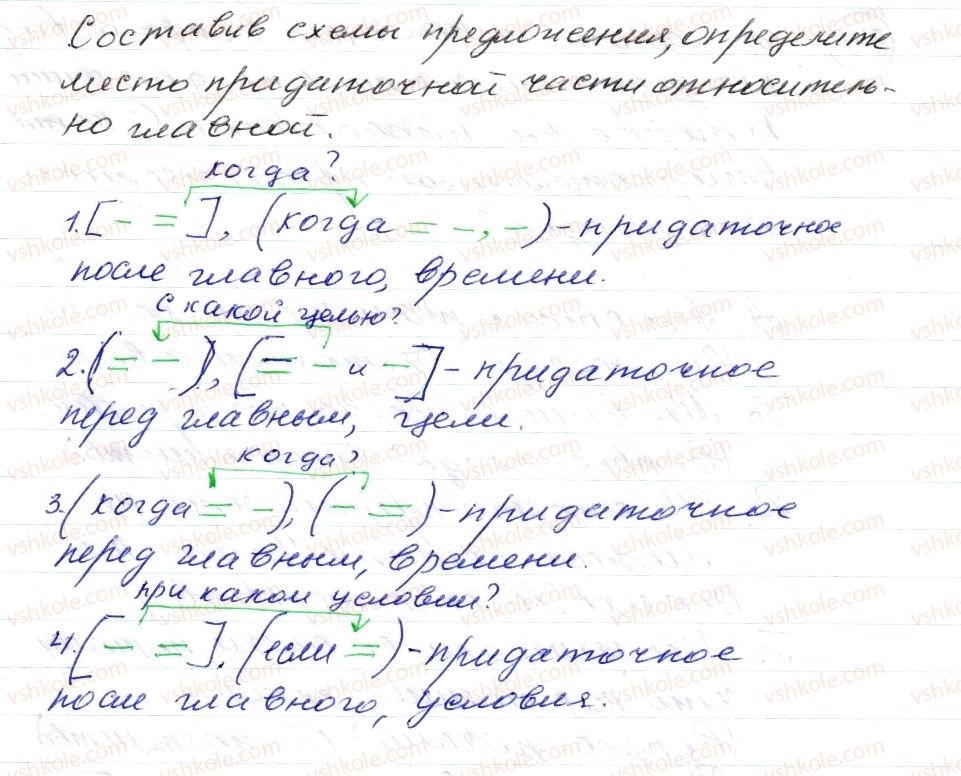 Составив схемы предложения, определите
место придаточной части относитель-
но главной.
когда?
1. [- =], (когда = -, -) - придаточное
после главного, времени.
с какой целью?
2. (= -), [= - и -] - придаточное
перед главным, цели.
когда?
3. (когда = -), (- =) - придаточное
перед главным, времени.
при каком условии?
4. [- =], (если =) - придаточное
после главного, условия.